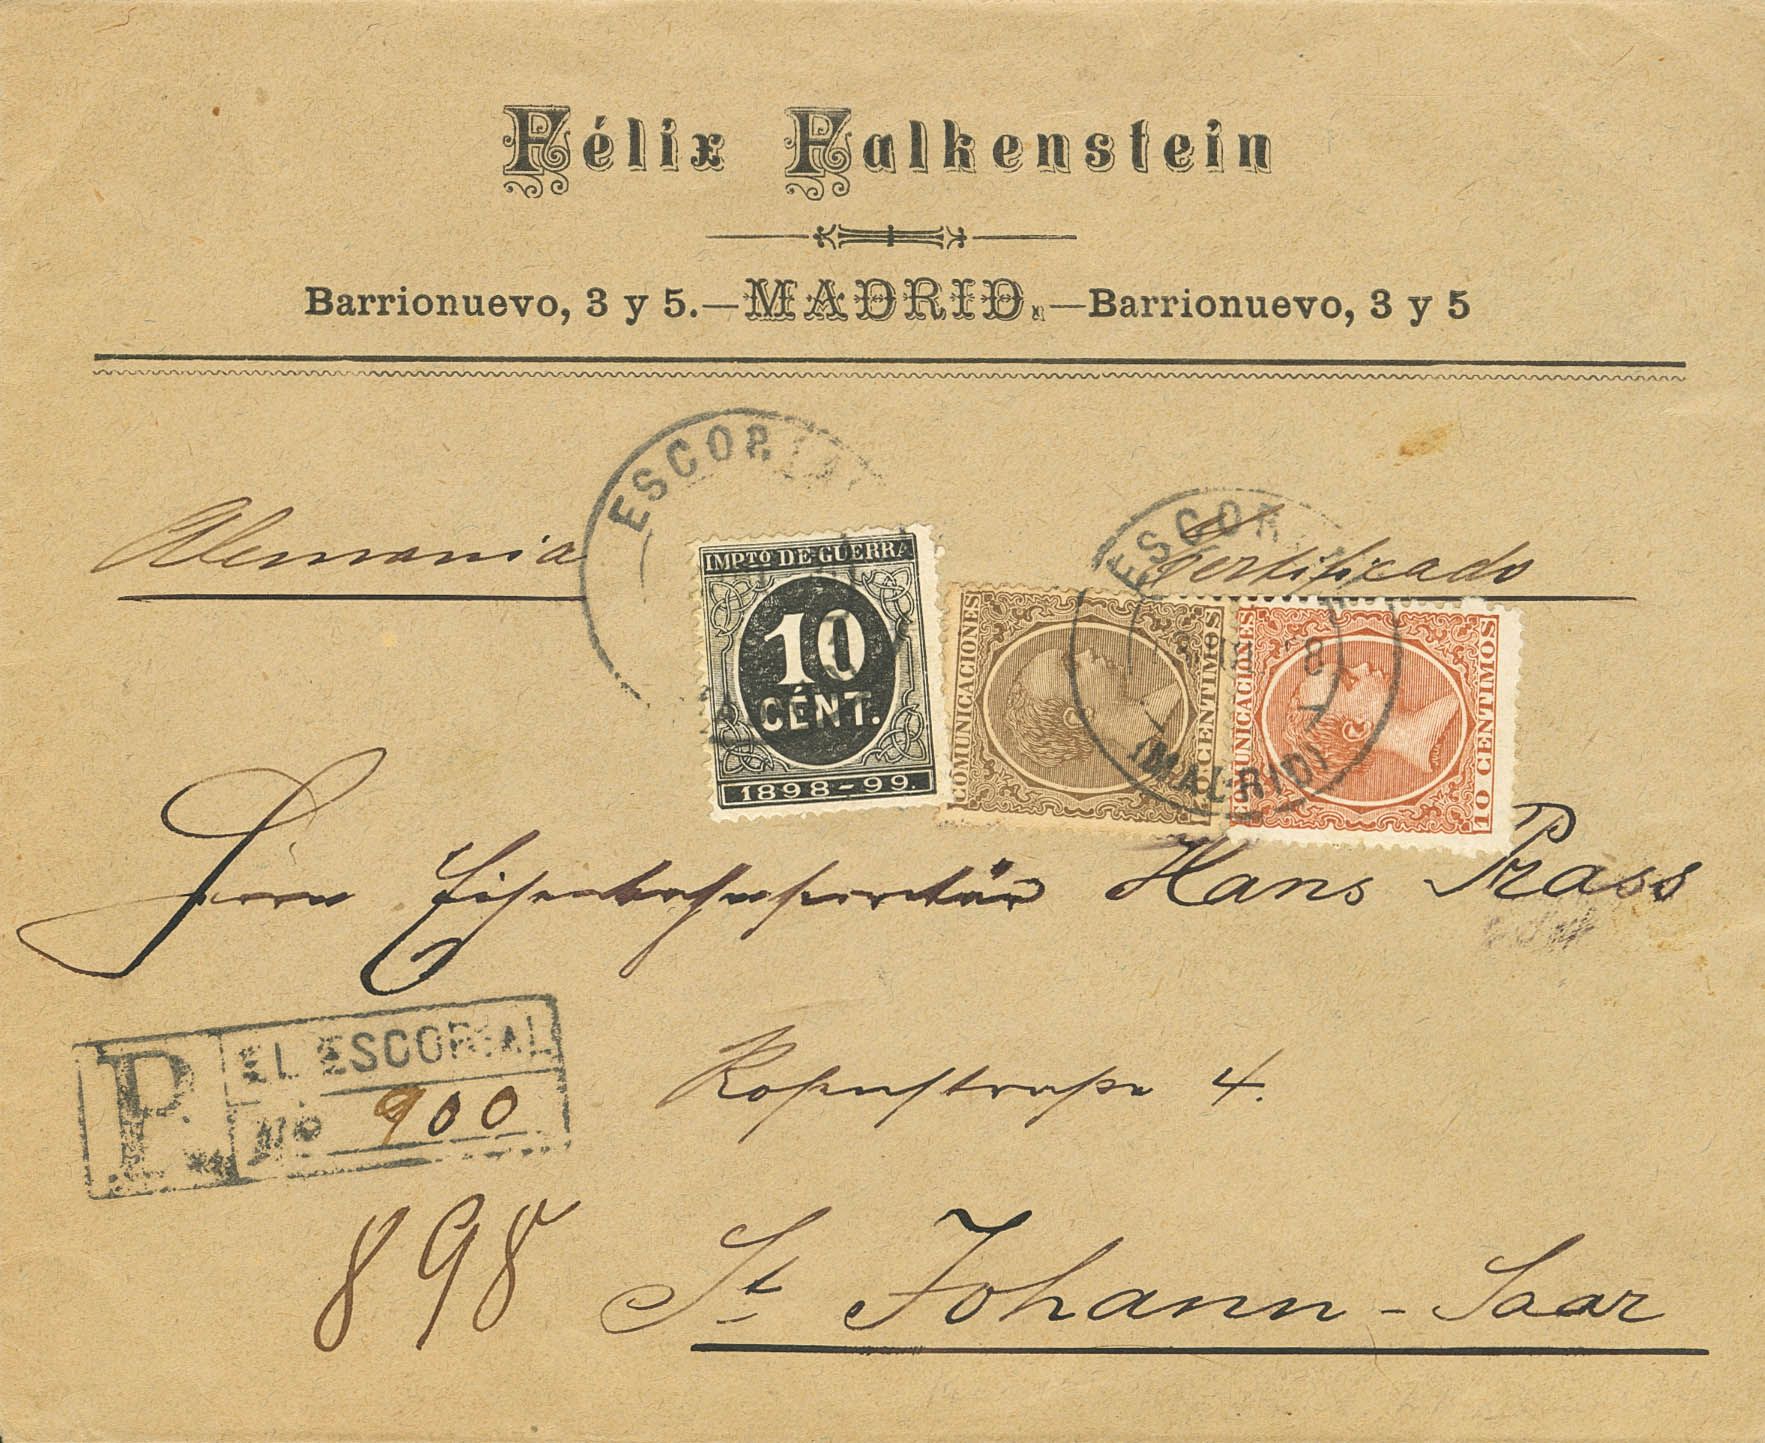 Félix Falkenstein
Barrionuevo, 3 y 5.—MADRID.—Barrionuevo, 3 y 5
ESCORIAL
Alemania
ESCORIAL
Certificado
IMPTO DE GUERRA
10
CÉNT.
1898-99.
COMUNICACIONES
CENTIMOS
COMUNICACIONES
10 CENTIMOS
(MADRID)
Herrn Eisenbahnsecretär Hans Prass
R
EL ESCORIAL
No 900
Rosenstrasse 4.
898
St Johann - Saar